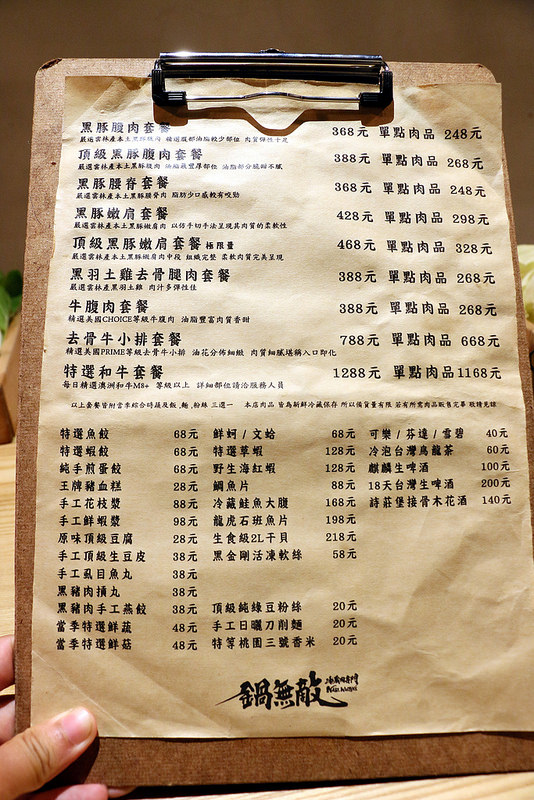 黑豚腹肉套餐 368元 單點肉品 248元
嚴選雲林產本土黑豚腹肉 精選腹部油脂較少部位 肉質彈性十足
頂級黑豚腹肉套餐 388元 單點肉品 268元
嚴選雲林產本土黑豚腹肉 油脂最豐厚部位 油脂部分脆甜不膩
黑豚腰脊套餐 368元 單點肉品 248元
嚴選雲林產本土黑豚腰脊肉 脂肪少口感較有咬勁
黑豚嫩肩套餐 428元 單點肉品 298元
嚴選雲林產本土黑豚嫩肩肉 以仿手切手法呈現其肉質的柔軟性
頂級黑豚嫩肩套餐 極限量 468元 單點肉品 328元
嚴選雲林產本土黑豚嫩肩肉中段 組織完整 柔軟肉質完美呈現
黑羽土雞去骨腿肉套餐 388元 單點肉品 268元
嚴選雲林產黑羽土雞 肉汁多彈性佳
牛腹肉套餐 388元 單點肉品 268元
精選美國CHOICE等級牛腹肉 油脂豐富肉質香甜
去骨牛小排套餐 788元 單點肉品 668元
精選美國PRIME等級去骨牛小排 油花分佈細緻 肉質細膩堪稱入口即化
特選和牛套餐 1288元 單點肉品 1168元
每日精選澳洲和牛M8+ 等級以上 詳細部位請洽服務人員
以上套餐皆附當季綜合時蔬及飯、麵、粉絲 三選一 本店肉品 皆為新鮮冷藏保存 所以備貨量有限 若有所需肉品販售完畢 敬請見諒
特選魚餃 68元 鮮蚵/文蛤 68元 可樂/芬達/雪碧 40元
特選蝦餃 68元 特選草蝦 128元 冷泡台灣烏龍茶 60元
純手煎蛋餃 68元 野生海紅蝦 128元 麒麟生啤酒 100元
王牌豬血糕 28元 鯛魚片 88元 18天台灣生啤酒 200元
手工花枝漿 88元 冷藏鮭魚大腹 168元 詩莊堡接骨木花酒 140元
手工鮮蝦漿 98元 龍虎石斑魚片 198元
原味頂級豆腐 28元 生食級2L干貝 218元
手工頂級生豆皮 38元 黑金剛活凍軟絲 58元
手工虱目魚丸 38元
黑豬肉摃丸 38元
黑豬肉手工燕餃 38元 頂級純綠豆粉絲 20元
當季特選鮮蔬 48元 手工日曬刀削麵 20元
當季特選鮮菇 48元 特等桃園三號香米 20元
鍋無敵